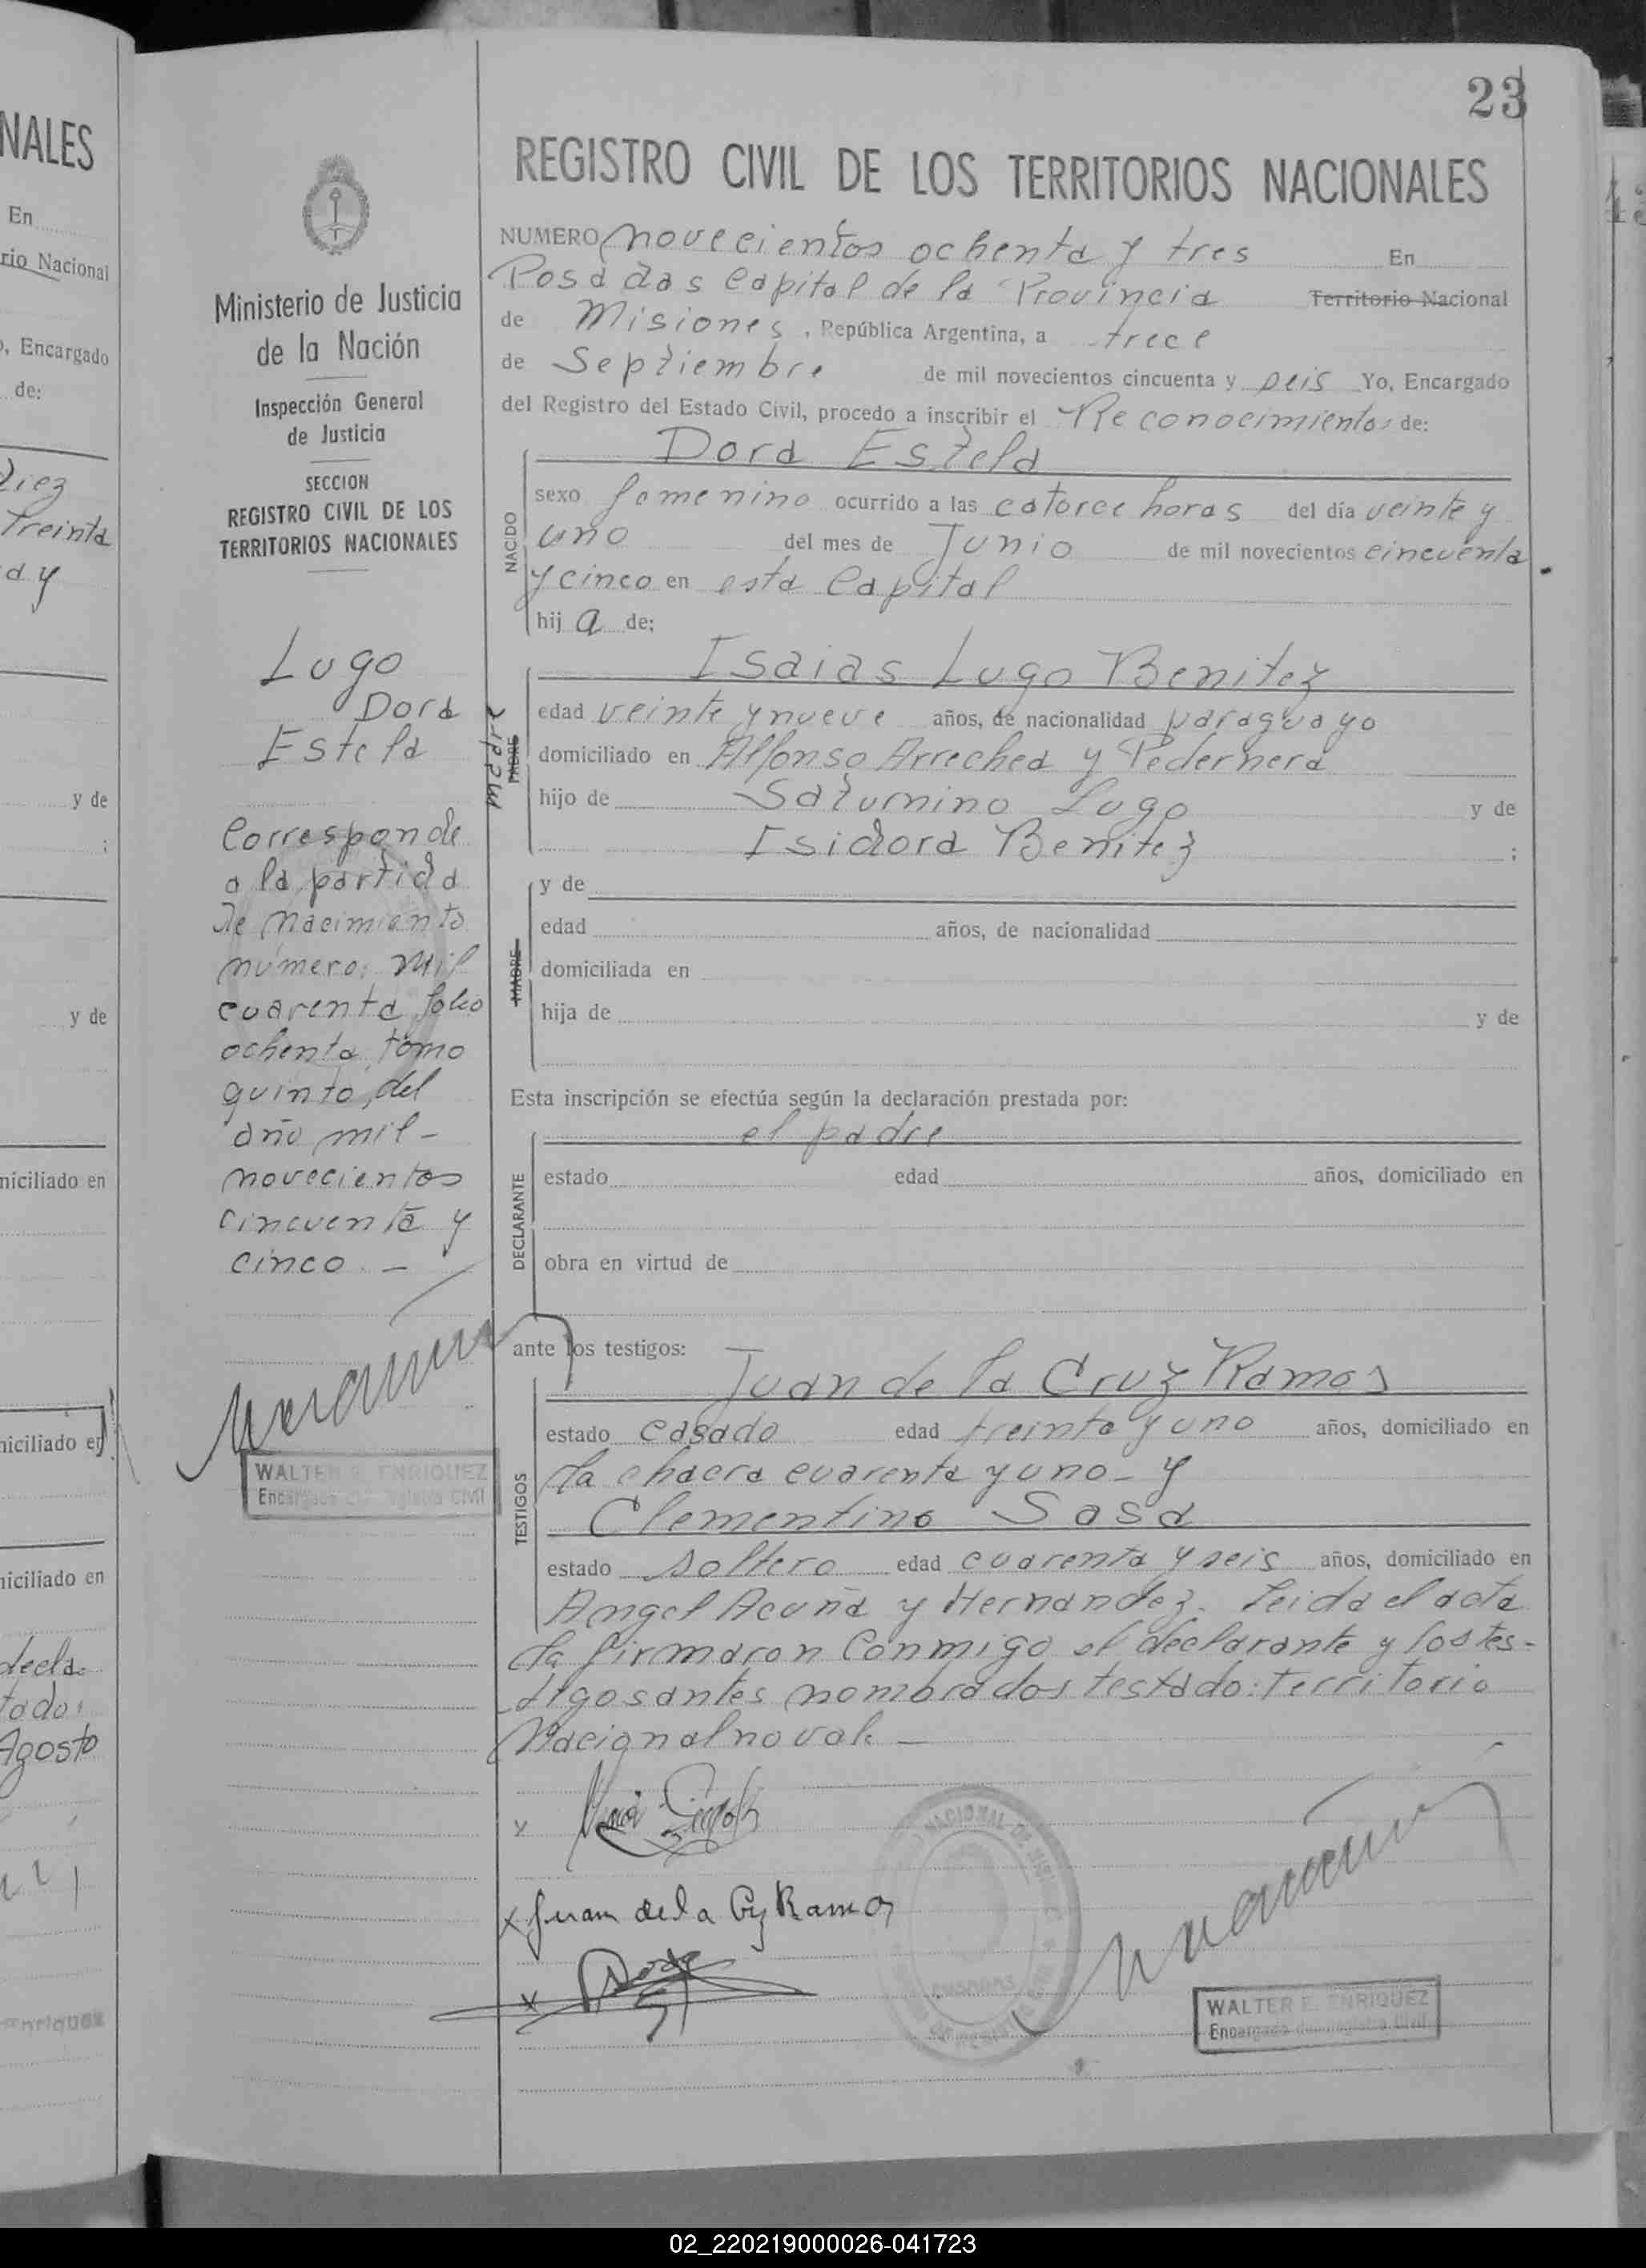 NALES
En
rio Nacional
o, Encargado
de:
Diez
Treinta
d y
y de
;
y de
niciliado en
niciliado en
niciliado en
decla-
tado:
Agosto
Enriquez
Ministerio de Justicia
de la Nación
Inspección General
de Justicia
SECCION
REGISTRO CIVIL DE LOS
TERRITORIOS NACIONALES
Lugo
Dora
Estela
Corresponde
a la partida
de nacimiento
número: mil
cuarenta folio
ochenta tomo
quinto, del
año mil-
novecientos
cincuenta y
cinco. -
WALTER E. ENRIQUEZ
Encargado del Registro Civil
23
REGISTRO CIVIL DE LOS TERRITORIOS NACIONALES
NUMERO novecientos ochenta y tres En
Posadas Capital de la Provincia Territorio Nacional
de Misiones, República Argentina, a trece
de Septiembre de mil novecientos cincuenta y seis Yo, Encargado
del Registro del Estado Civil, procedo a inscribir el Reconocimiento de:
NACIDO
Dora Estela
sexo femenino ocurrido a las catorce horas del día veinte y
uno del mes de Junio de mil novecientos cincuenta
y cinco en esta Capital
hij a de:
madre
PADRE
Isaias Lugo Benitez
edad veinte y nueve años, de nacionalidad paraguayo
domiciliado en Alfonso Arrechea y Pedernera
hijo de Saturnino Lugo y de
Isidora Benitez ;
MADRE
y de
edad años, de nacionalidad
domiciliada en
hija de y de
Esta inscripción se efectúa según la declaración prestada por:
DECLARANTE
el padre
estado edad años, domiciliado en
obra en virtud de
ante los testigos:
TESTIGOS
Juan de la Cruz Ramos
estado casado edad treinta y uno años, domiciliado en
la chacra cuarenta y uno - y
Clementino Sosa
estado soltero edad cuarenta y seis años, domiciliado en
Angel Acuña y Hernandez. Leida el acta
la firmaron conmigo el declarante y los tes-
tigos antes nombrados testado: Territorio
Nacional no vale -
x Juan de la Cruz Ramos
x
WALTER E. ENRIQUEZ
Encargado del Registro Civil
02_220219000026-041723